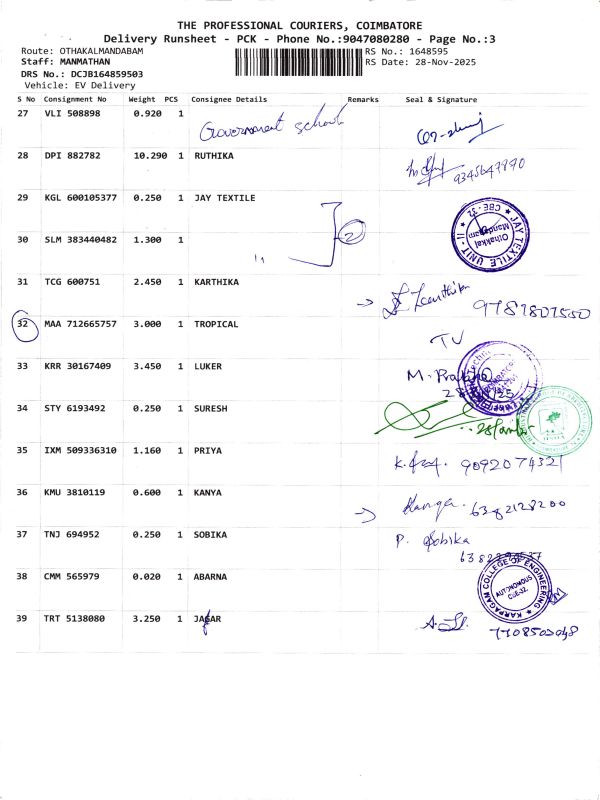 THE PROFESSIONAL COURIERS, COIMBATORE
Delivery Runsheet - PCK - Phone No.:9047080280 - Page No.:3
Route: OTHAKALMANDABAM
RS No.: 1648595
Staff: MANMATHAN
RS Date: 28-Nov-2025
DRS No.: DCJB164859503
Vehicle: EV Delivery
S No Consignment No Weight PCS Consignee Details Remarks Seal & Signature
27 VLI 508898 0.920 1 Government school
28 DPI 882782 10.290 1 RUTHIKA 9345647990
29 KGL 600105377 0.250 1 JAY TEXTILE
JAY TEXTILE UNIT - II
Othakkal
Mandapam
CBE - 32
30 SLM 383440482 1.300 1 " 2
31 TCG 600751 2.450 1 KARTHIKA
Karthika 9787807550
32 MAA 712665757 3.000 1 TROPICAL
33 KRR 30167409 3.450 1 LUKER
34 STY 6193492 0.250 1 SURESH
35 IXM 509336310 1.160 1 PRIYA 9092074321
36 KMU 3810119 0.600 1 KANYA 6382128200
37 TNJ 694952 0.250 1 SOBIKA P. Sobika
38 CMM 565979 0.020 1 ABARNA
KARPAGAM COLLEGE OF ENGINEERING
AUTONOMOUS
CBE-32.
39 TRT 5138080 3.250 1 JAFAR